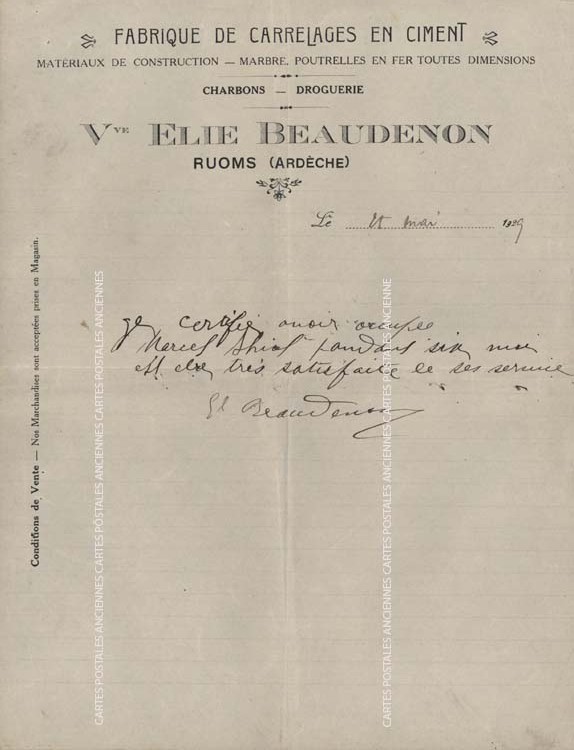 FABRIQUE DE CARRELAGES EN CIMENT
MATÉRIAUX DE CONSTRUCTION — MARBRE, POUTRELLES EN FER TOUTES DIMENSIONS
CHARBONS — DROGUERIE
Vve ELIE BEAUDENON
RUOMS (ARDÈCHE)
Le mai 1929
Je certifie avoir occupée
Marcel pandant six moi
et etre très satisfaite de ses service
El Beaudenon
Conditions de Vente — Nos Marchandises sont acceptées prises en Magasin.
CARTES POSTALES ANCIENNES CARTES POSTALES ANCIENNES CARTES POSTALES ANCIENNES
CARTES POSTALES ANCIENNES CARTES POSTALES ANCIENNES CARTES POSTALES ANCIENNES